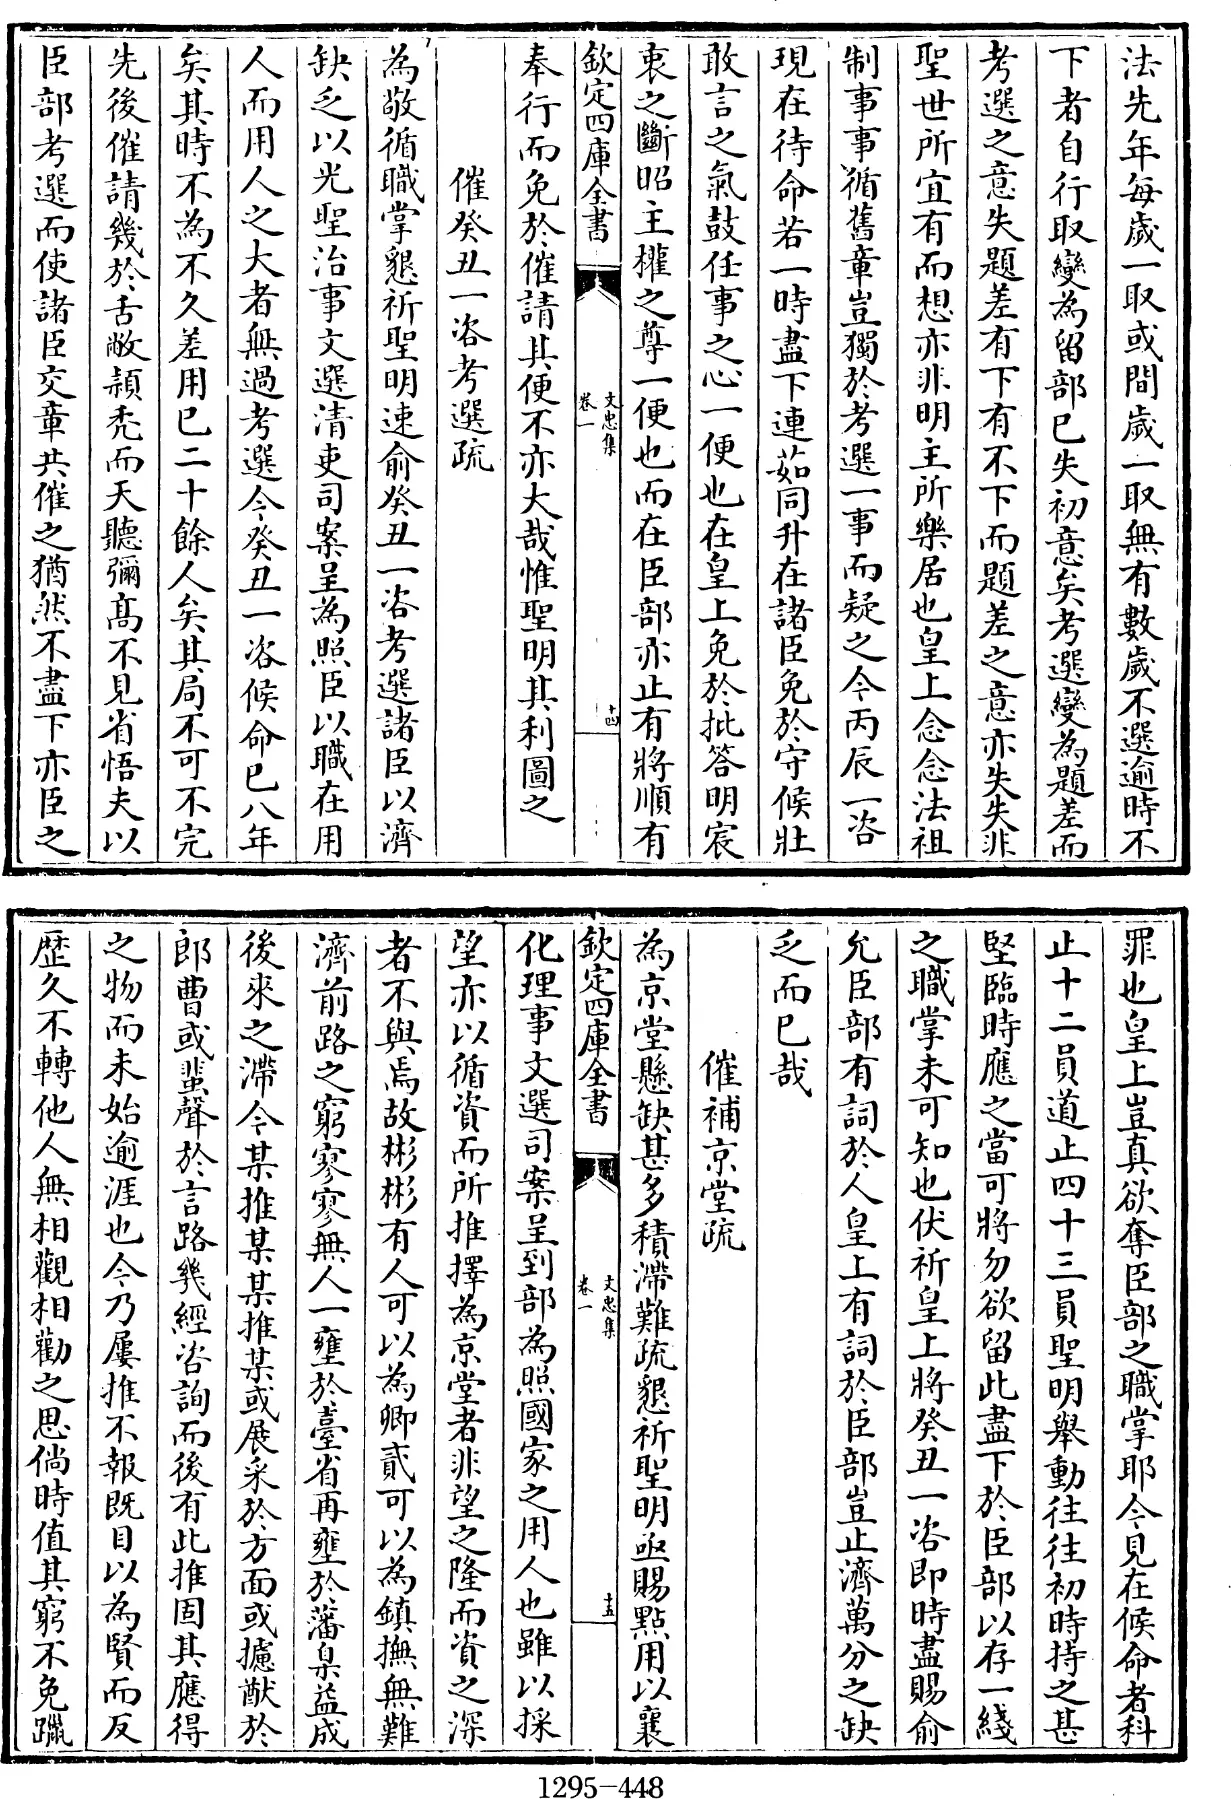 法先年每歲一取或間歲一取無有數歲不選逾時不
下者自行取變為留部已失初意矣考選變為題差而
考選之意失題差有下有不下而題差之意亦失失非
聖世所宜有而想亦非明主所樂居也皇上念念法祖
制事事循舊章豈獨於考選一事而疑之今丙辰一咨
現在待命若一時盡下連茹同升在諸臣免於守候壯
敢言之氣鼓任事之心一便也在皇上免於批答明宸
衷之斷昭主權之尊一便也而在臣部亦止有將順有
欽定四庫全書
文忠集
卷一
十四
奉行而免於催請其便不亦大哉惟聖明其利圖之
催癸丑一咨考選疏
為敬循職掌懇祈聖明速俞癸丑一咨考選諸臣以濟
缺乏以光聖治事文選清吏司案呈為照臣以職在用
人而用人之大者無過考選今癸丑一咨候命已八年
矣其時不為不久差用已二十餘人矣其局不可不完
先後催請幾於舌敝頴禿而天聽彌高不見省悟夫以
臣部考選而使諸臣交章共催之猶然不盡下亦臣之
罪也皇上豈真欲奪臣部之職掌耶今見在候命者科
止十二員道止四十三員聖明舉動往往初時持之甚
堅臨時應之當可將勿欲留此盡下於臣部以存一綫
之職掌未可知也伏祈皇上將癸丑一咨即時盡賜俞
允臣部有詞於人皇上有詞於臣部豈止濟萬分之缺
乏而已哉
催補京堂疏
為京堂懸缺甚多積滯難疏懇祈聖明亟賜點用以襄
欽定四庫全書
文忠集
卷一
十五
化理事文選司案呈到部為照國家之用人也雖以採
望亦以循資而所推擇為京堂者非望之隆而資之深
者不與焉故彬彬有人可以為卿貳可以為鎮撫無難
濟前路之窮寥寥無人一壅於臺省再壅於藩臬益成
後來之滯今某推某某推某或展采於方面或攄猷於
郎曹或蜚聲於言路幾經咨詢而後有此推固其應得
之物而未始逾涯也今乃屢推不報既目以為賢而反
歴久不轉他人無相觀相勸之思倘時值其窮不免躐
1295-448